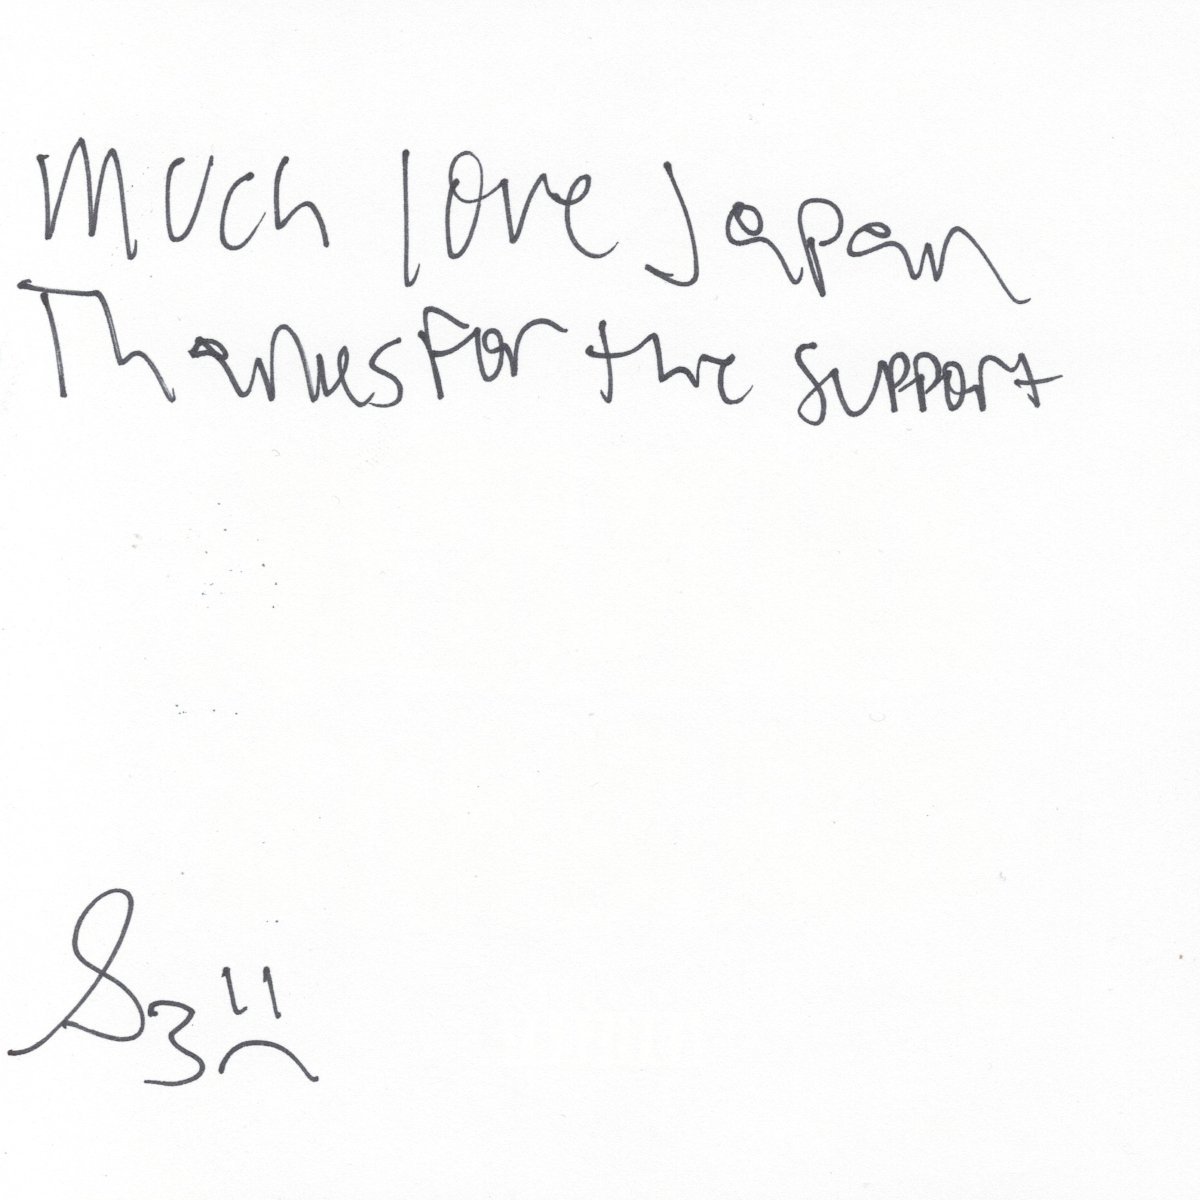 Much love Japan
Thanks For the support